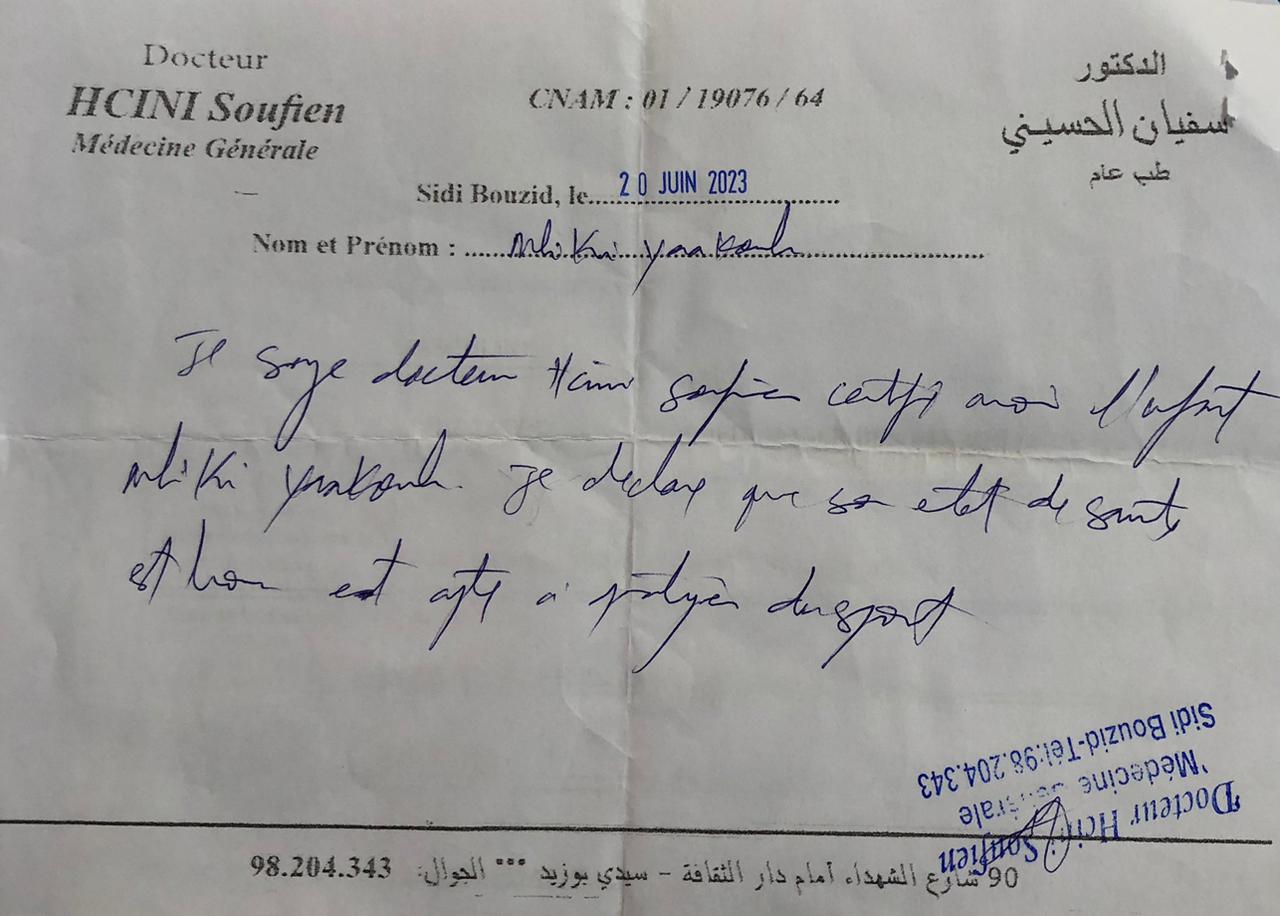 Docteur
HCINI Soufien
Médecine Générale
CNAM : 01 / 19076 / 64
الدكتور
سفيان الحسيني
طب عام
Sidi Bouzid, le 20 JUIN 2023
Nom et Prénom : Mhiki yaakoub
Je docteur Hcini Soufien certifi avoi l'enfant
Mhiki yaakoub. Je declare que so etat de sante
est bon est apte a du sport
Docteur Hcini Soufien
Médecine Générale
Sidi Bouzid-Tél:98.204.343
90 شارع الشهداء أمام دار الثقافة - سيدي بوزيد *** الجوال: 98.204.343